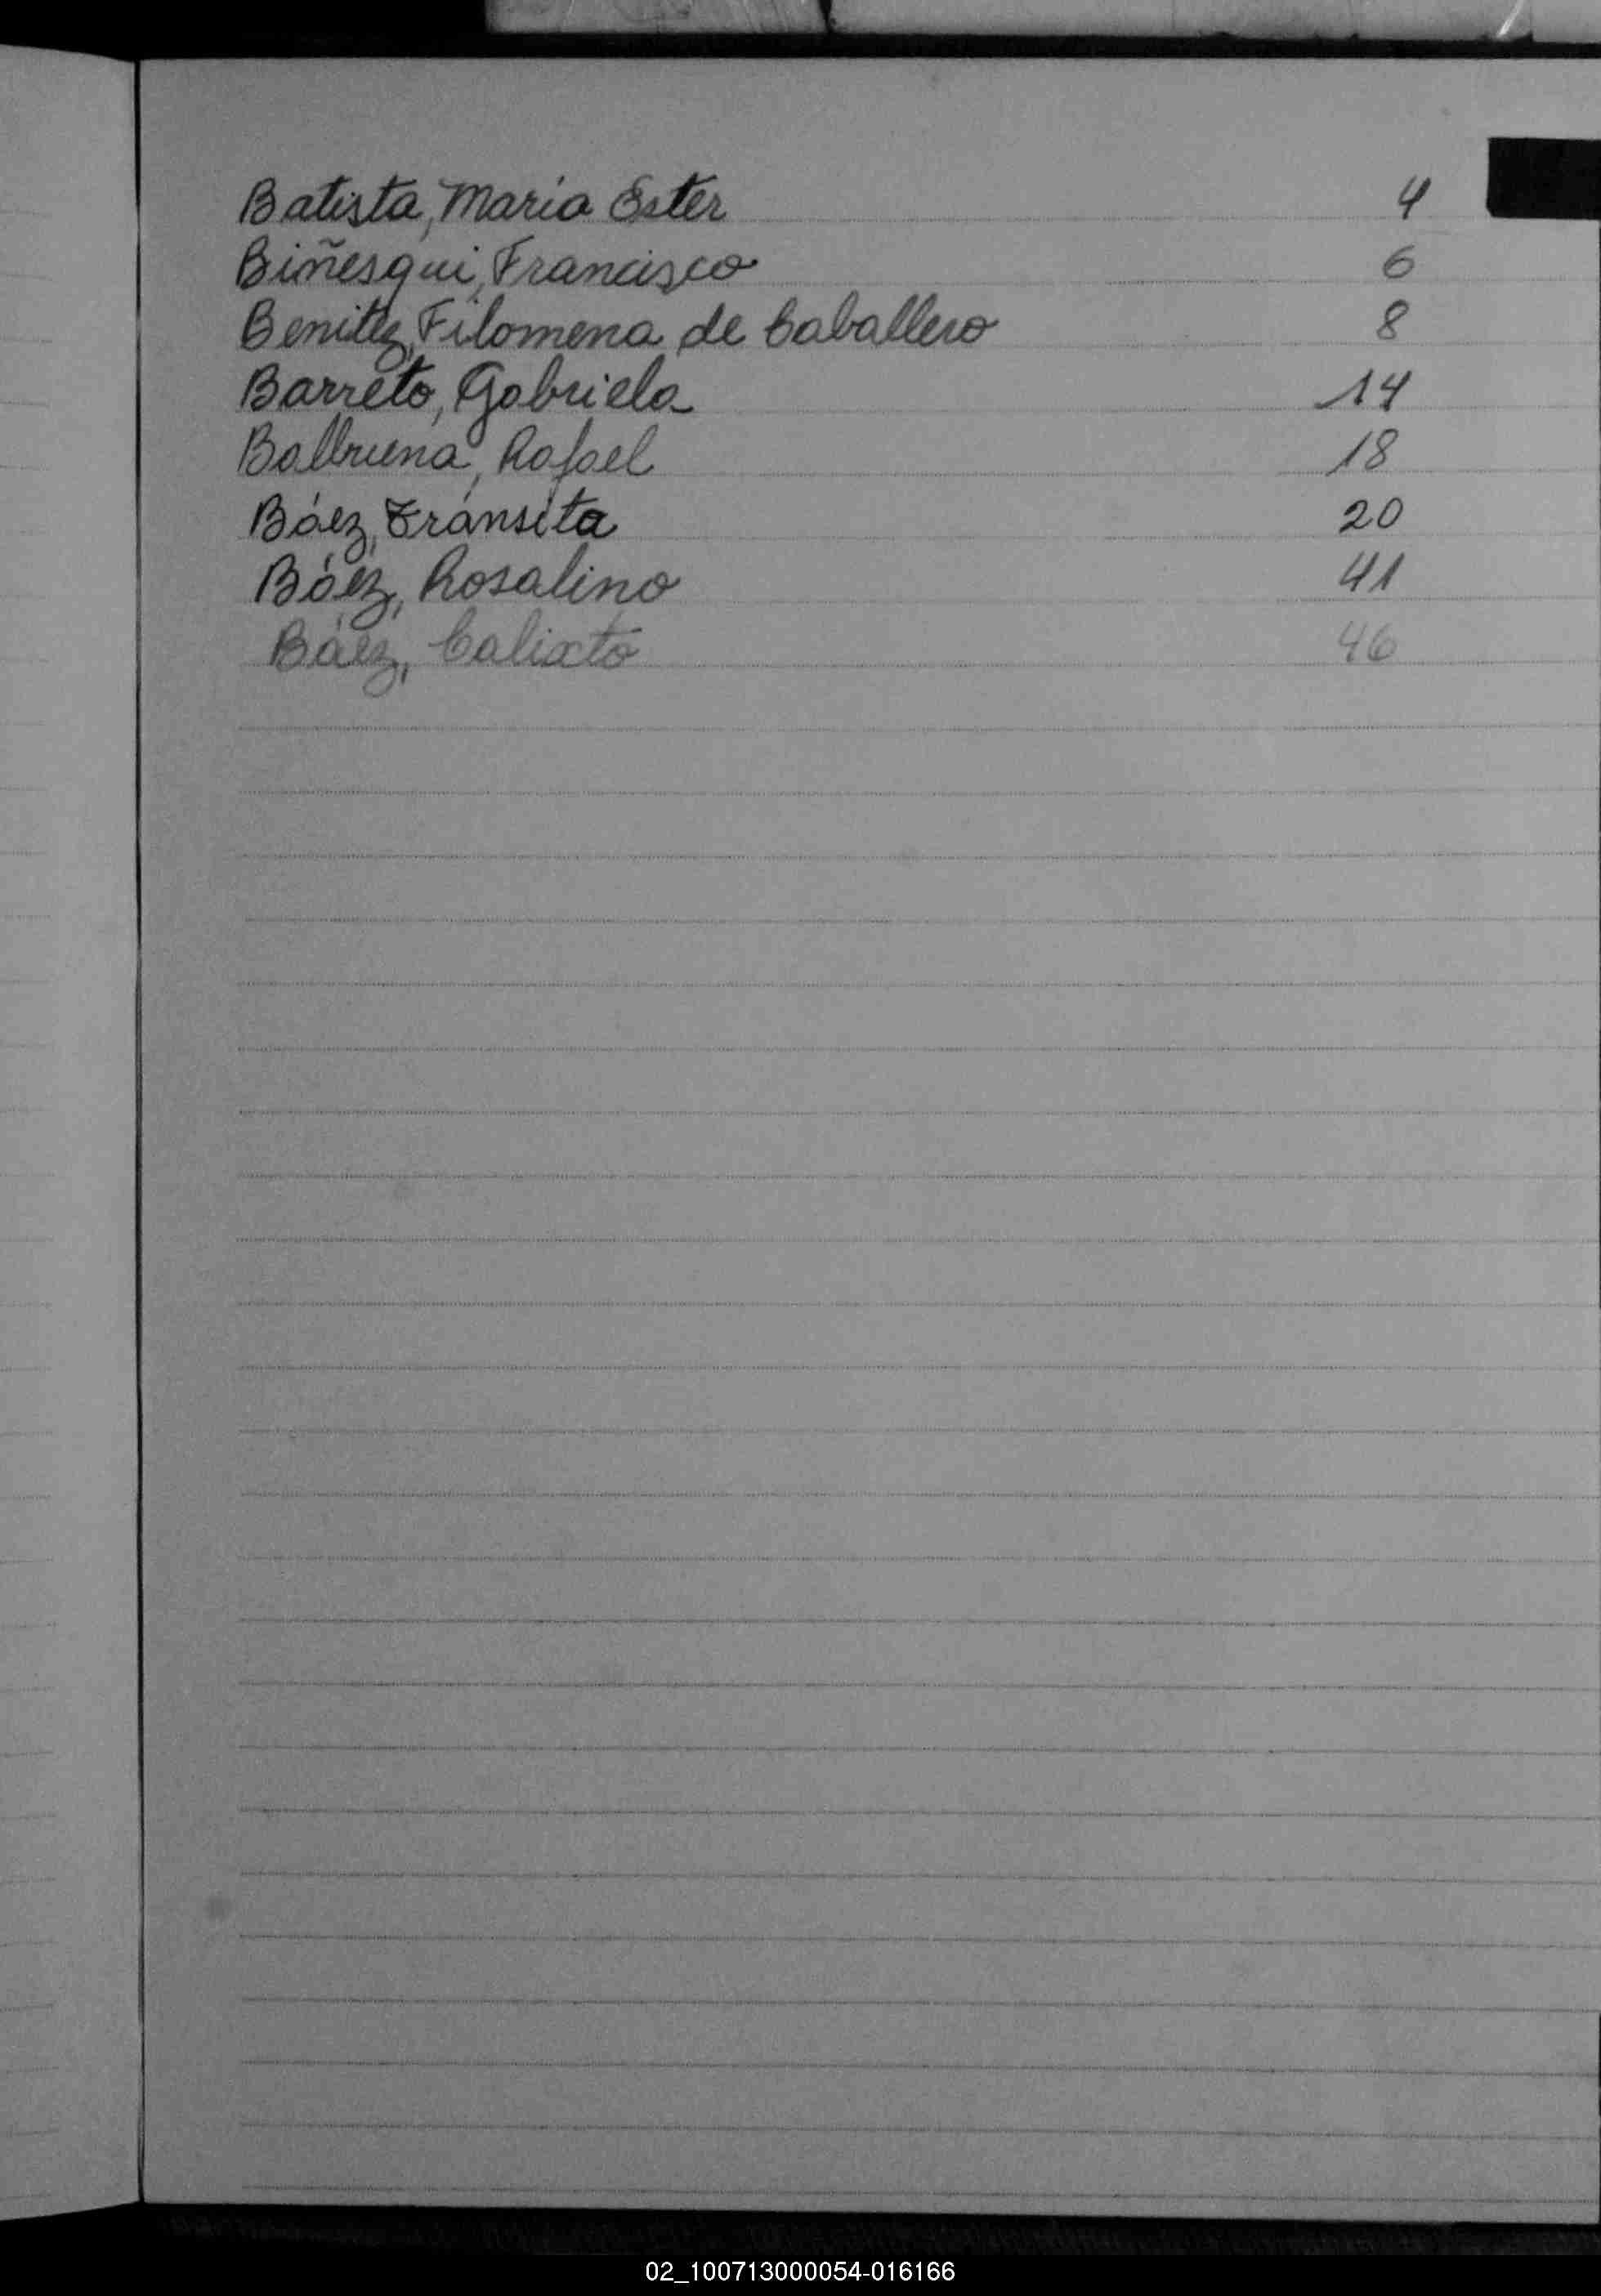 Batista, Maria Ester 4
Biñesqui, Francisco 6
Benitez, Filomena de Caballero 8
Barreto, Gabriela 14
Balbuena, Rafael 18
Báez, Tránsita 20
Báez, Rosalino 41
Báez, Calixto 46
02_100713000054-016166